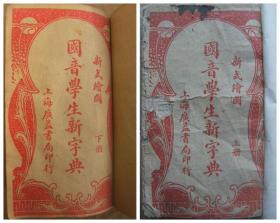 新式繪圖
下冊
國音學生新字典
上海廣益書局印行
新式繪圖
上冊
國音學生新字典
上海廣益書局印行